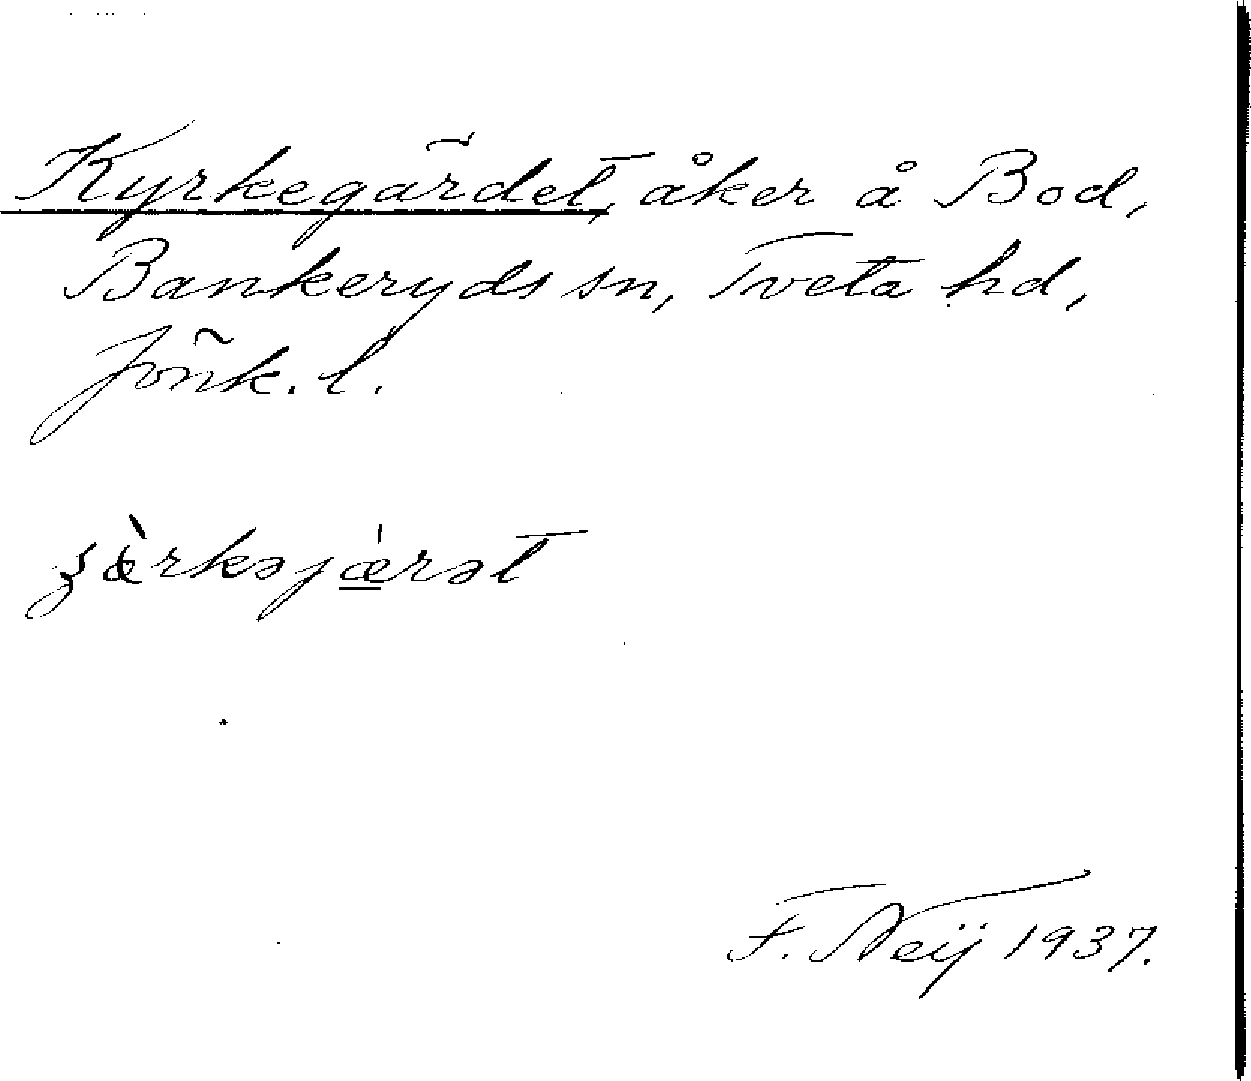 Kyrkegärdet, åker å Bod,
Bankeryds sn, Tveta hd,
Jönk. l.
ʒæ̀rkəjæ̲̀rət
F. Neij 1937.